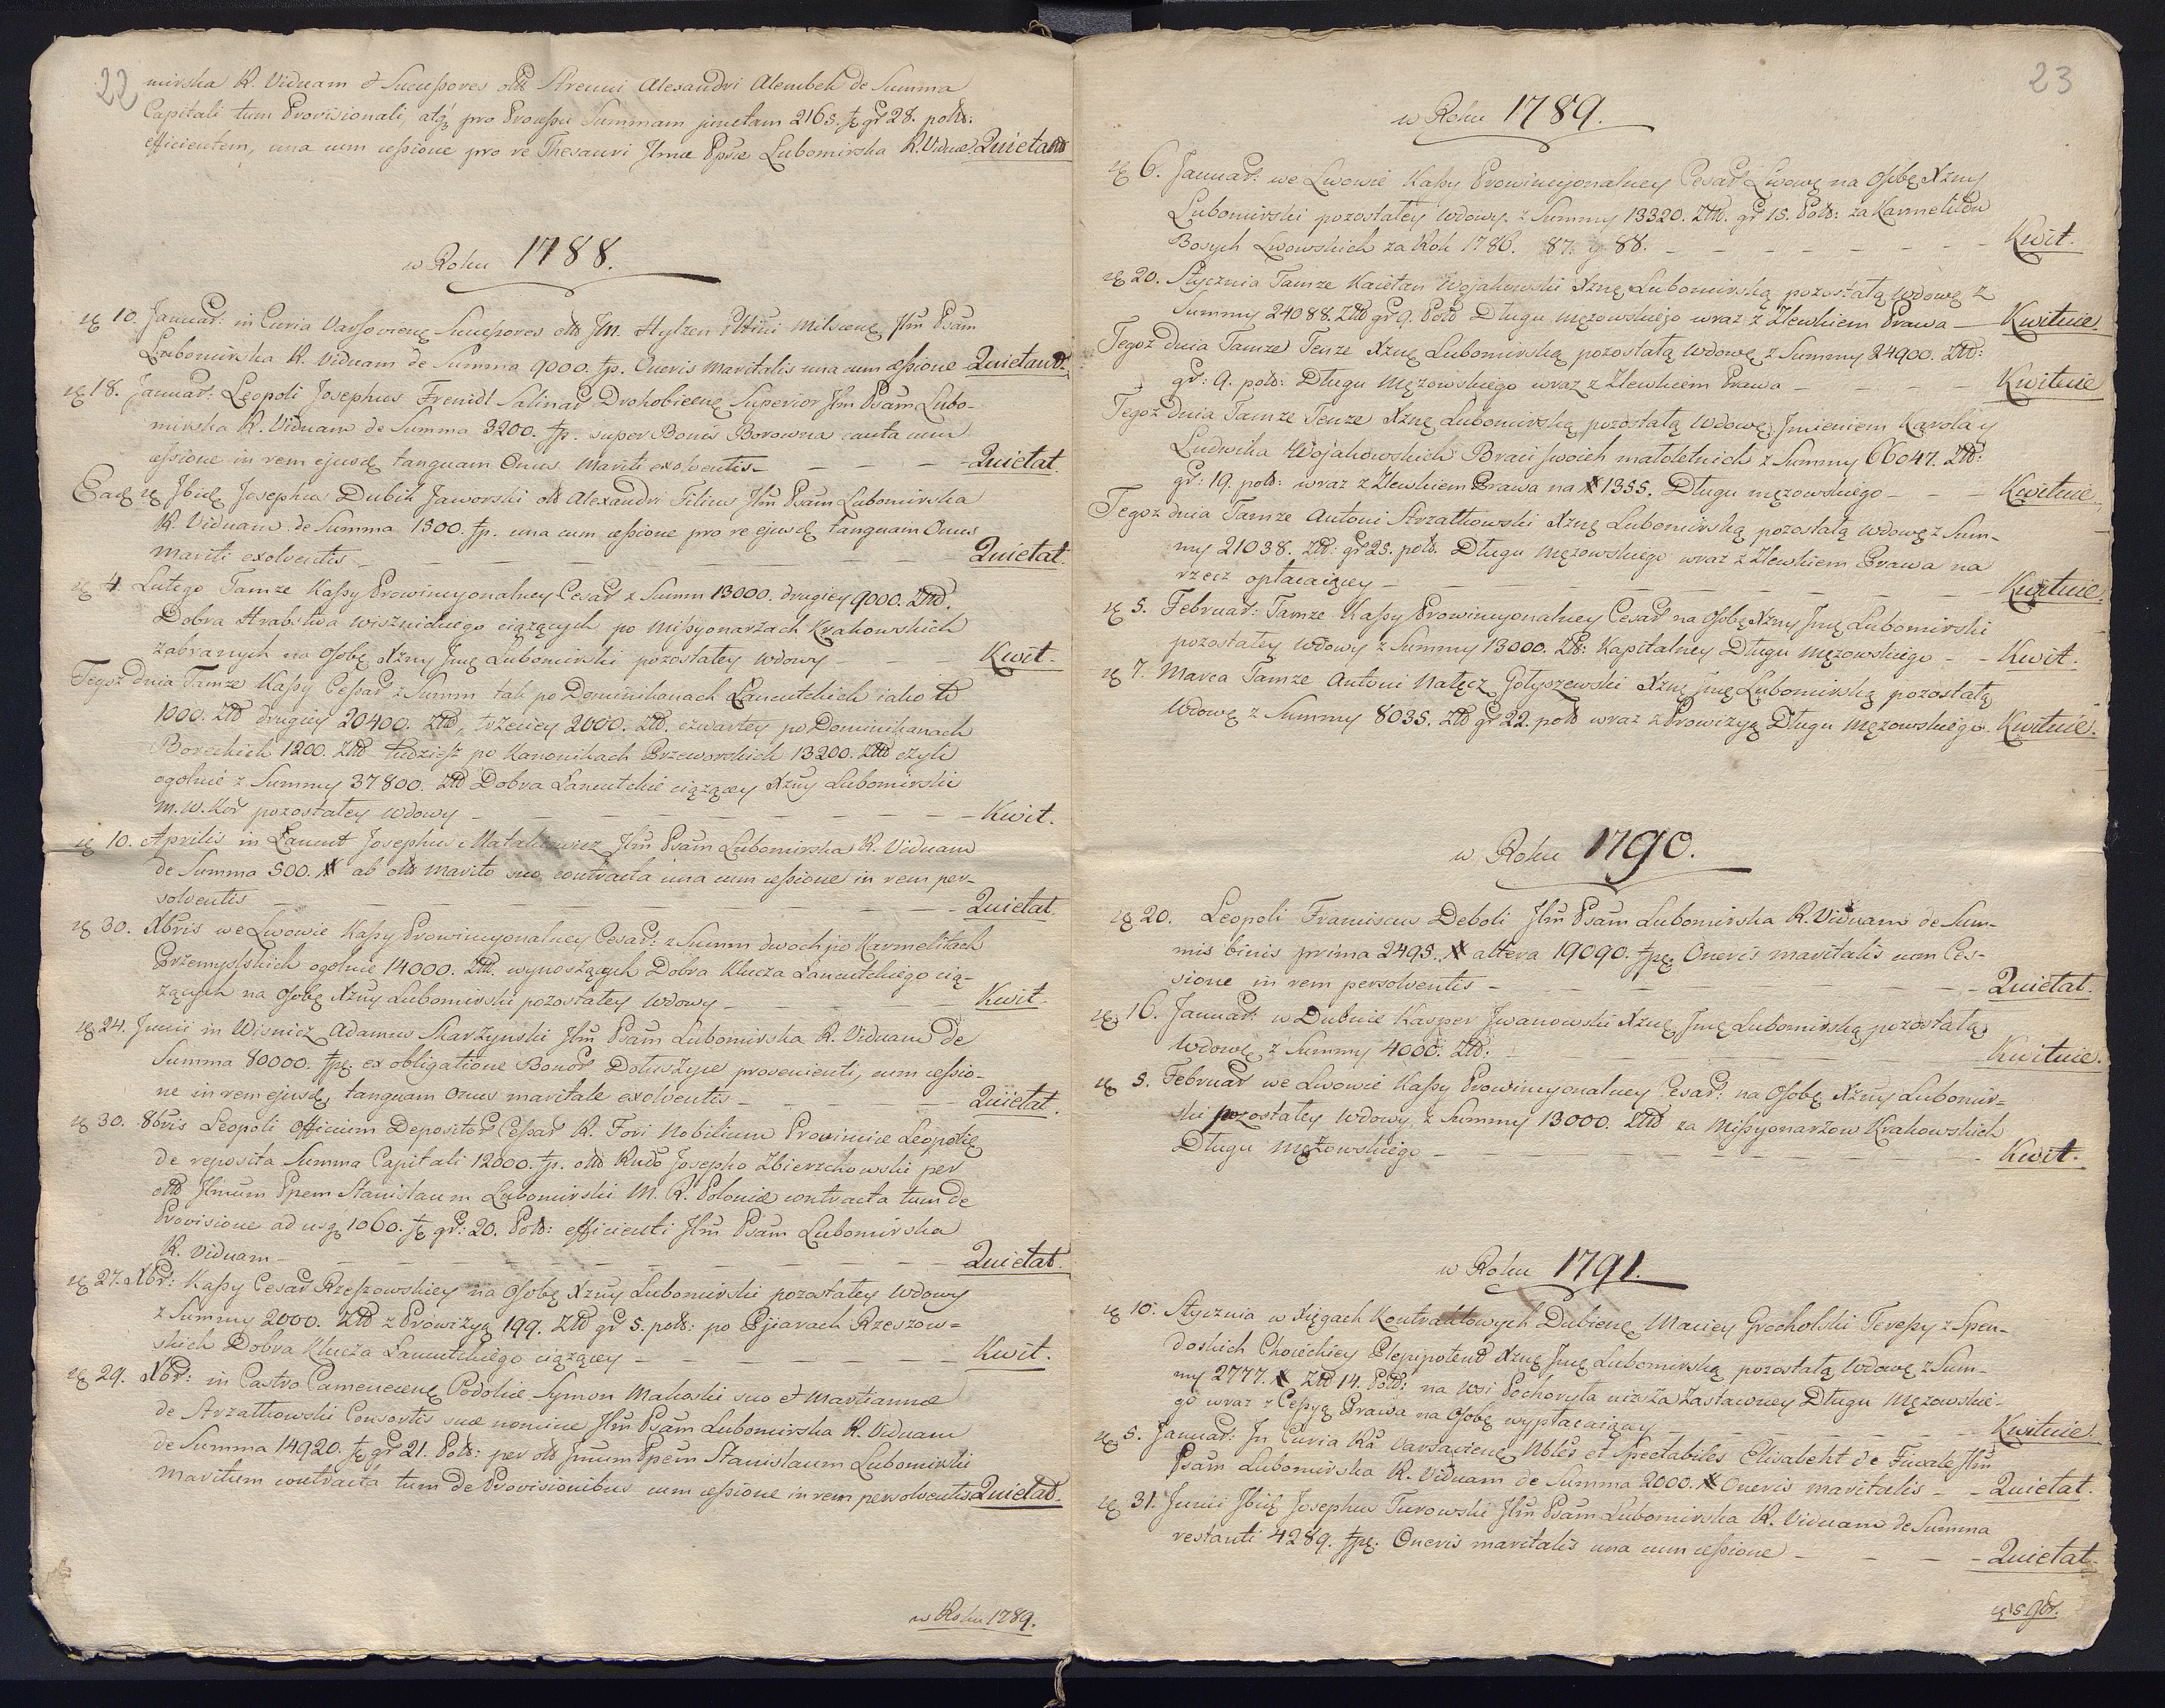 22
mirska R. Viduam & Successores olt Strenui Alexandri Alembek de Summa
Capitali tum Provisionali, atq pro Processu Summam junctam 2165. fp gr 28. polt:
efficientem, una cum cessione pro re Thesauri Jlmæ Ppsæ Lubomirska R. Viduæ Quietant
w Roku 1788.
10. Januar: in Curia Varsovienę Sucessores olt Jlli. Hylzen Plttini Milscenę Jlm Psam
Lubomirska R. Viduam de Summa 9000. fp. Oneris Maritalis una cum cessione Quietant.
18. Januar: Leopoli Josephus Freindl Salinar Drohobicenę Superior Jlm Psam Lubo-
mirska R. Viduam de Summa 3200. fp. super Bonis Borowna cauta cum
cessione in rem ejusdę tanquam Onus Mariti exolventis - Quietat.
Eadę Jbidę Josephus Dubik Jaworski olt Alexandri Filius Jlm Psam Lubomirska
R. Viduam de Summa 1500. fp. una cum cessione pro re ejusdę tanquam Onus
Mariti exolventis - Quietat.
4. Lutego Tamze Kassy Prowincyonalney Cesar z Summ 13000. drugiey 9000. Złtt.
Dobra Hrabstwa Wisznickiego ciążących po Missyonarzach Krakowskich
zabranych na Osobę Xżny Jmę Lubomirski pozostałey Wdowy - Kwit.
Tegoż dnia Tamże Kassy Cessar z Summ tak po Dominikanach Łancutckich iako to
1000. Złtt drugiey 20400. Złtt, trzeciey 2000. Złtt. czwartey po Dominikanach
Boreckich 1200. Złtt tudzież po Kanonikach Przeworskich 13200. Złtt czyli
ogolnie z Summy 37800. Złtt Dobra Łancutckie ciążącey Xżny Lubomirski
M. W. Kor pozostałey Wdowy - Kwit.
10. Aprilis in Łancut Josephus Jlm Psam Lubomirska R. Viduam
de Summa 500. # ab olt Marito suo contracta una cum cessione in rem per-
solventis - Quietat.
30. Xbris we Lwowie Kassy Prowincyonalney Cesar: z Summ dwoch po Karmelitach
Przemyslskich ogolnie 14000. Złtt. wynoszących Dobra Klucza Łancutckiego cią-
żących na Osobę Xżny Lubomirski pozostałey Wdowy - Kwit.
24. Junii in Wisnicz Adamus Skarżynski Jlm Psam Lubomirska R. Viduam de
Summa 80000. fpę. ex obligatione Bonor Dołuszyce provenienti, cum cessio-
ne in rem ejusdę, tanquam Onus maritale exolventis - Quietat.
30. 8bris Leopoli Officium Depositor Cessar R. Fori Nobilium Provinciæ Leopolię
de reposita Summa Capitali 12000. fp. olt Rndo Josepho Zbierzchowski per
olt Jlmum Ppem Stanislaum Lubomirski M. R. Poloniæ contracta tum de
Provisione ad usq 1060. fp gr: 20. Polt: efficienti Jlm Psam Lubomirska
R. Viduam - Quietat.
27. Xbr: Kassy Cesar Rzeszowskiey na Osobę Xżny Lubomirski pozostałey Wdowy
z Summy 2000. Złtt z Prowizyą 199. Złtt gr 5. polt: po Pijarach Rzeszow=
skich Dobra Klucza Łancutckiego ciążącey - Kwit.
29. Xbr: in Castro Camenecenę Podoliæ Symon Makoski suo et Martianna
de Strzałkowski Consortis suæ nomine Jlm Psam Lubomirska R. Viduam
de Summa 14920. fp gr 21. Polt: per olt Jmum Ppem Stanislaum Lubomirski
Maritum contracta tum de Provisionibus cum cessione in rem persolventis Quietat.
w Roku 1789.
23
w Roku 1789.
6. Januar: we Lwowie Kassy Prowincyonalney Cesar Lwowę na Osobę Xżny
Lubomirski pozostałey Wdowy. z Summy 13320. Złtt. gr 15. Polt: za Karmelitow
Bosych Lwowskich za Rok 1786. 87. y 88. - Kwit.
20. Stycznia Tamze Kaietan Wojakowski Xżnę Lubomirską pozostałą Wdowę z
Summy 24088. Złtt gr 9. Polt Długu Mężowskiego wraz z Zlewkiem Prawa - Kwituie.
Tegoż dnia Tamze Tenze Xżnę Lubomirską pozostałą Wdowę z Summy 24900. Złtt:
gr: 9. polt: Długu Mężowskiego wraz z Zlewkiem Prawa - Kwituie
Tegoż dnia Tamze Tenze Xżnę Lubomirską pozostałą Wdowę, Jmieniem Karola y
Ludwika Wojakowskich Braci swoich małoletnich z Summy 66047. Złtt:
gr: 19. polt: wraz z Zlewkiem Prawa na # 1355. Długu mężowskiego - Kwituie
Tegoż dnia Tamze Antoni Strzałkowski Xżnę Lubomirską pozostałą Wdowę z Sum-
my 21038. Złtt: gr 25. polt. Długu Mężowskiego wraz z Zlewkiem Prawa na
rzecz opłacaiącey - Kwituie.
5. Februar: Tamze Kassy Prowincyonalney Cesar na Osobę Xżny Jmę Lubomirski
pozostałey Wdowy z Summy 13000. Złt: Kapitalney Długu Mężowskiego - Kwit.
7. Marca Tamze Antoni Nałęcz Gołyszewski Xżnę Jmę Lubomirską pozostałą
Wdowę z Summy 8035. Złtt gr 22. polt wraz z Prowizyą Długu Mężowskiego. Kwituie.
w Roku 1790.
20. Leopoli Franciscus Deboli Jlm Psam Lubomirska R. Viduam de Sum-
mis binis prima 2495. # altera 19090. fpę. Oneris maritalis cum Ces-
sione in rem persolventis - Quietat.
16. Januar: w Dubnie Kasper Jwanowski Xżnę Jmę Lubomirską pozostałą
Wdowę z Summy 4000. Złtt: - Kwituie.
5. Februar we Lwowie Kassy Prowincyonalney Cesar: na Osobę Xżny Lubomir=
ski pozostałey Wdowy z Summy 13000. Złtt za Missyonarzow Krakowskich
Długu Mężowskiego - Kwit.
w Roku 1791.
10. Stycznia w Xięgach Kontraktowych Dubienę Maciey Grocholski Teressy z Spen-
doskich Choieckiey Plenipotent Xżnę Jmę Lubomirską pozostałą Wdowę z Sum-
my 2777. # Złtt 14. Polt: na Wsi Pochoryła niższa Zastawney Długu Mężowskie-
go wraz z Cessyą Prawa na Osobę wypłacaiącey - Kwituie.
5. Januar: Jn Curia Ra Varsavienę Nbles et Spectabiles Elisabeht de Jlm
Psam Lubomirska R. Viduam de Summa 2000. # Oneris maritalis - Quietat.
31. Junii Jbidę Josephus Turowski Jlm Psam Lubomirska R. Viduam de Summa
restanti 4289. fpę. Oneris maritalis una cum cessione - Quietat.
15. 9br.